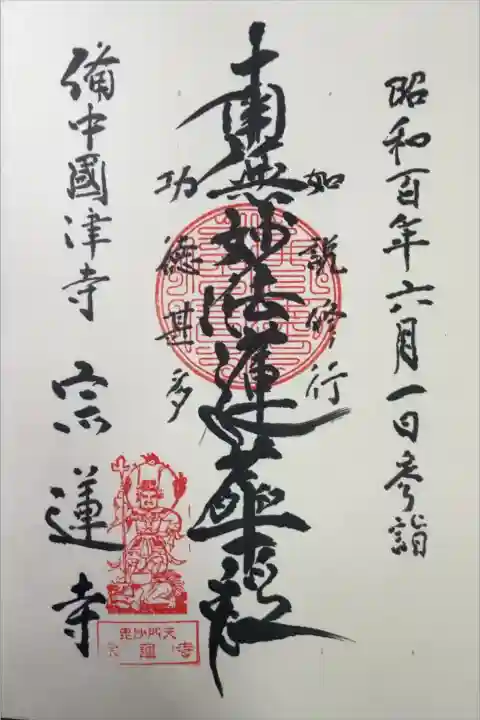 昭和百年六月一日参詣
如説修行
南無妙法蓮華経
功徳甚多
備中國津寺
宗蓮寺
毘沙門天